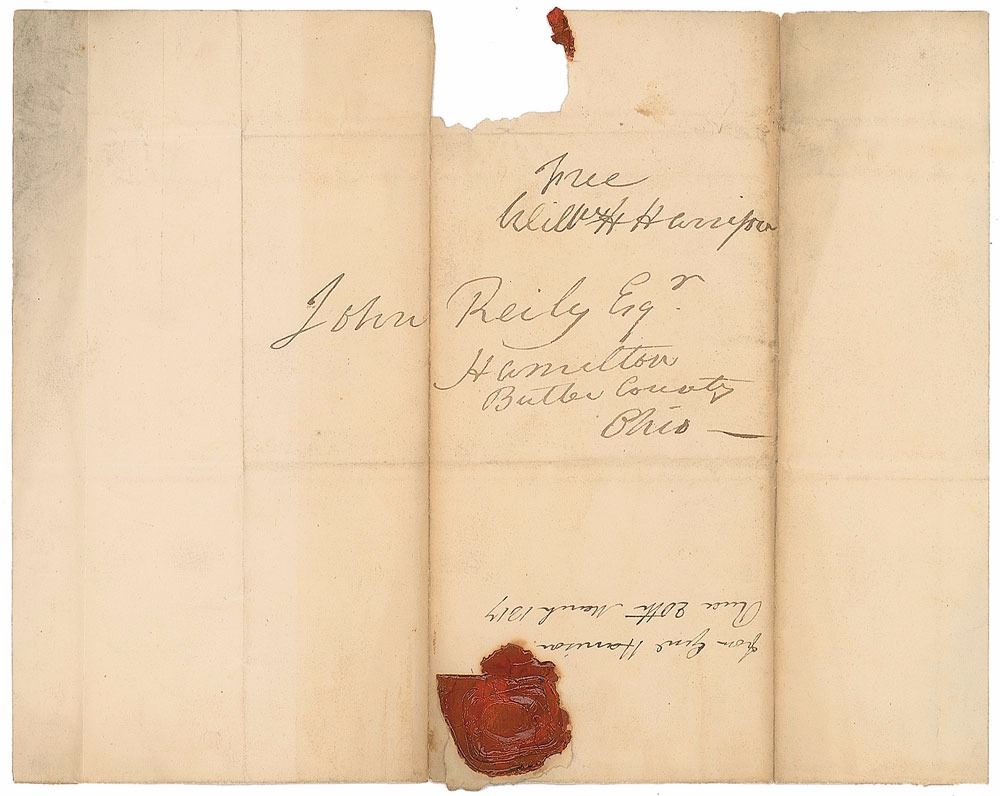 Free
Will H Harrison
John Reily Esqr
Hamilton
Butler County
Ohio —
from Genl Harrison
20th March 1817